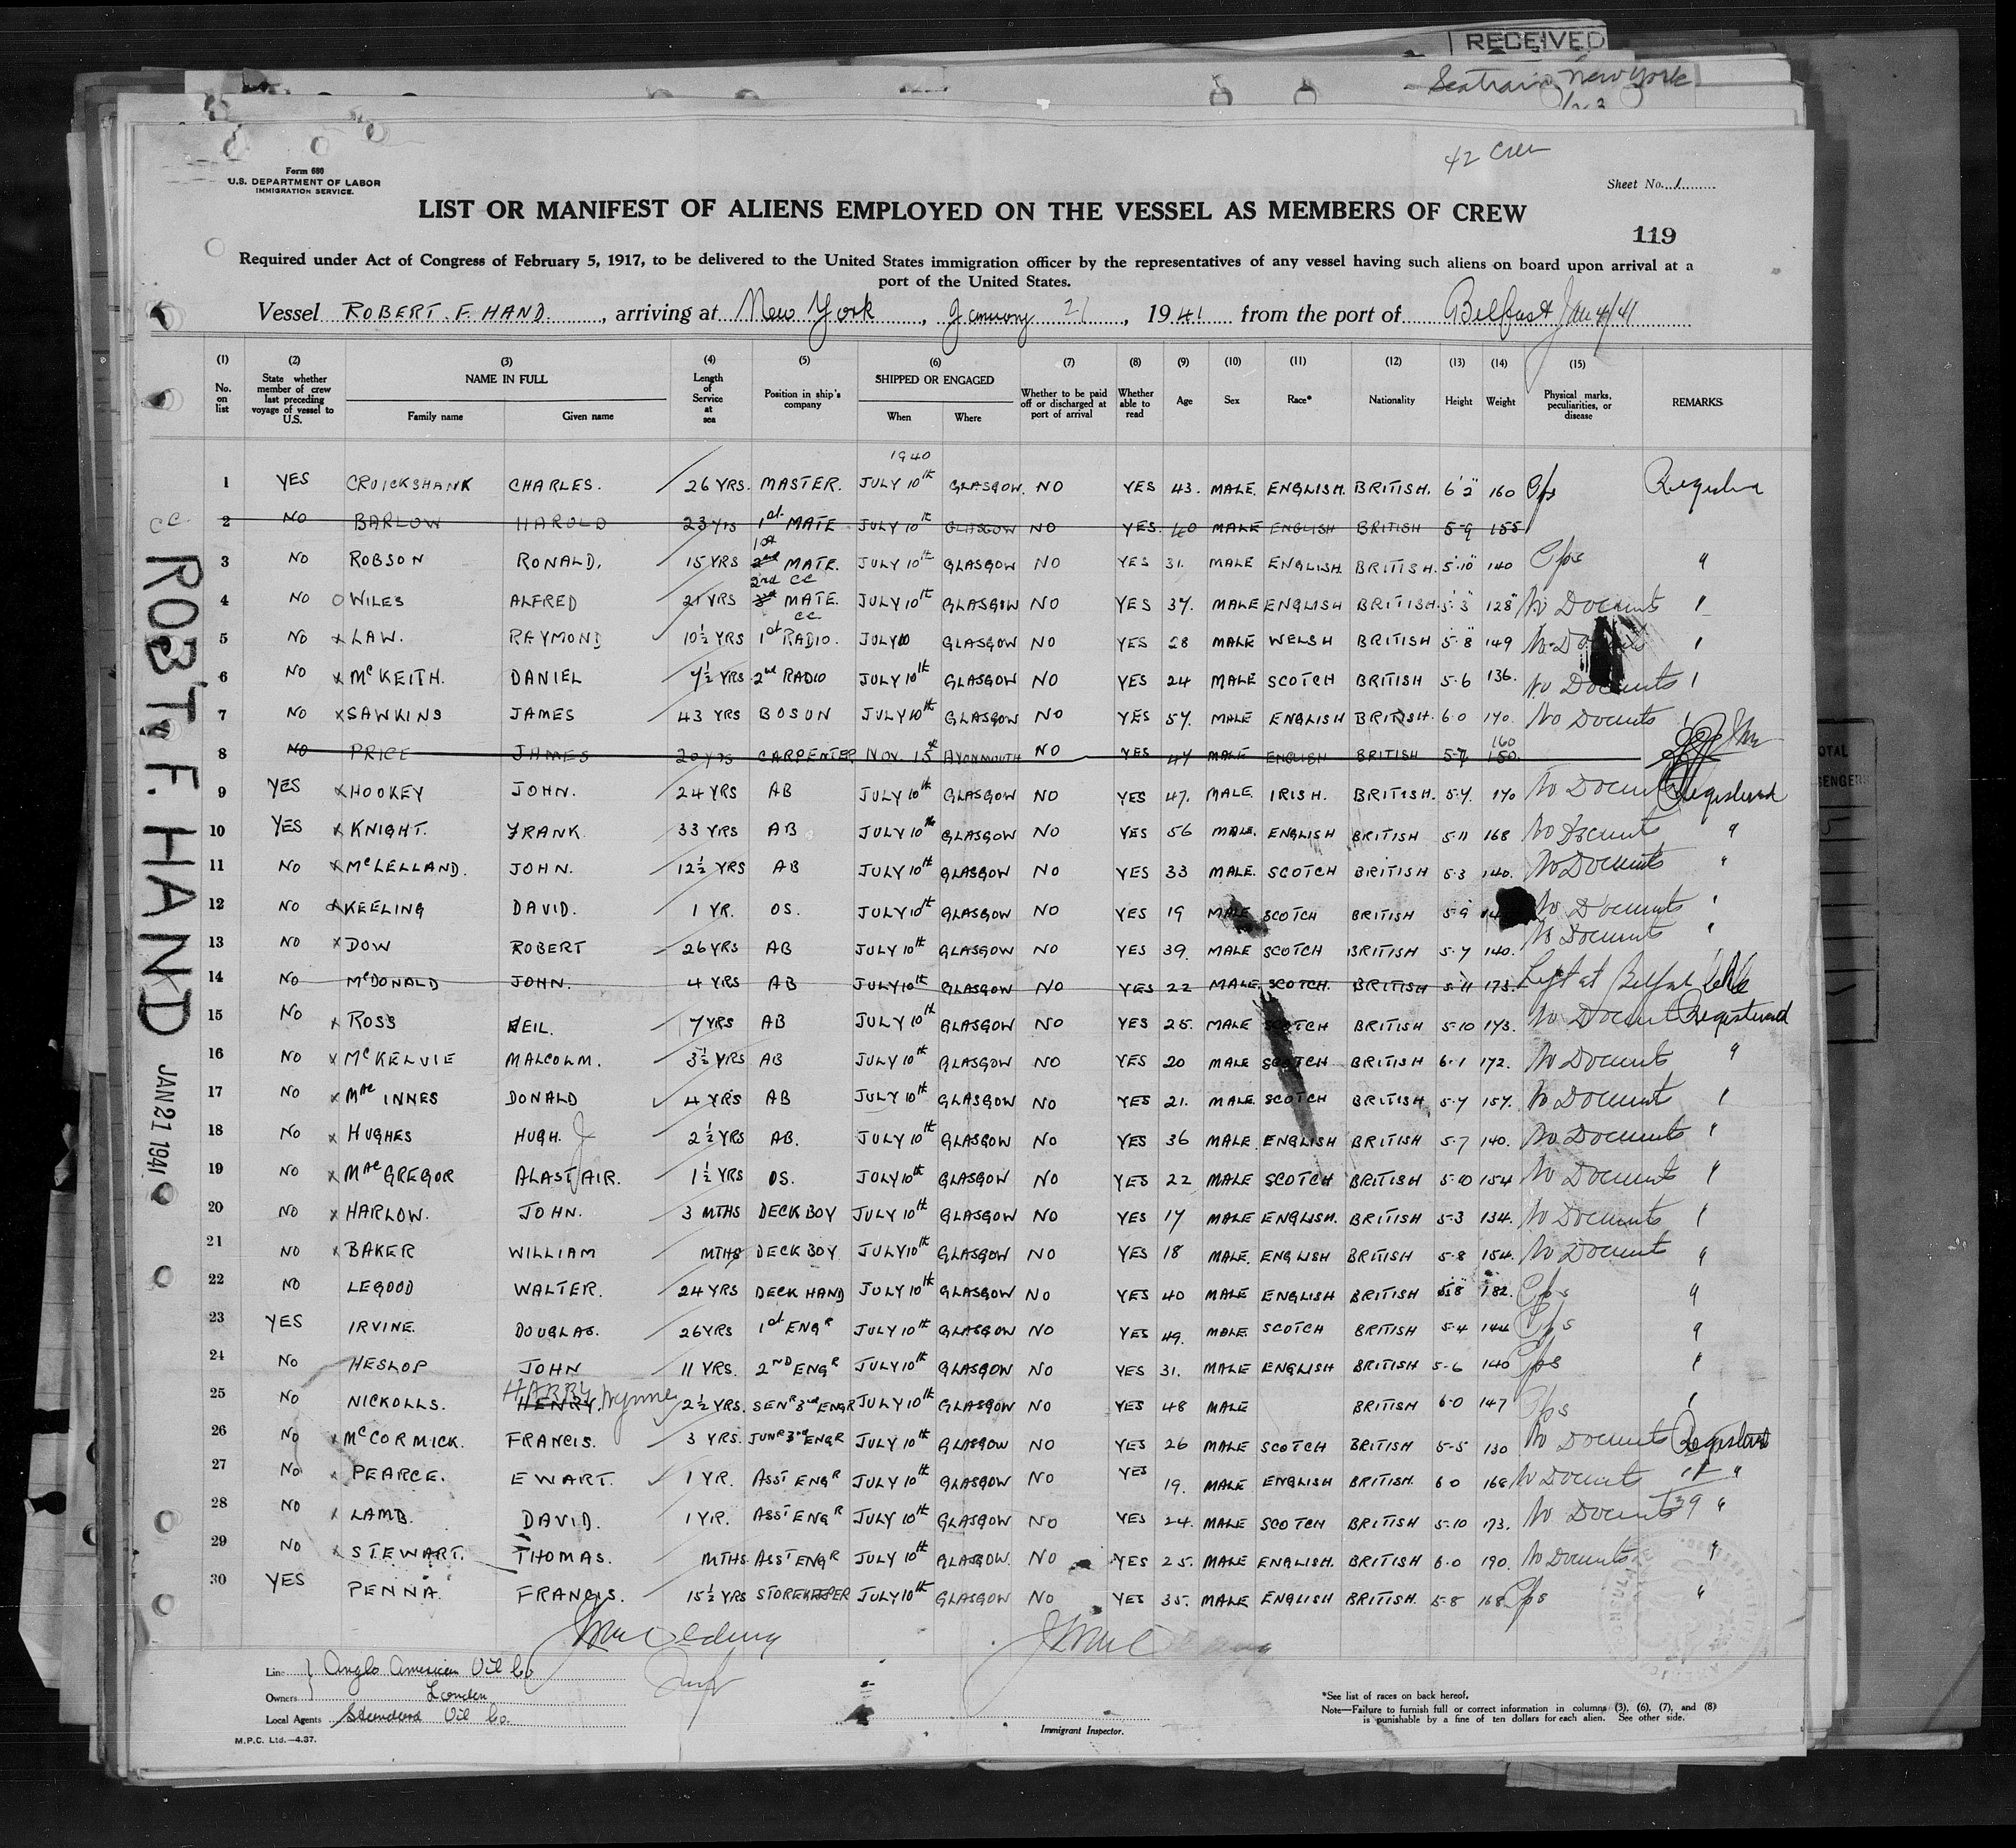 RECEIVED
Seatrain New York
42 Crew
Form 680
U.S. DEPARTMENT OF LABOR
IMMIGRATION SERVICE.
Sheet No. 1
LIST OR MANIFEST OF ALIENS EMPLOYED ON THE VESSEL AS MEMBERS OF CREW
119
Required under Act of Congress of February 5, 1917, to be delivered to the United States immigration officer by the representatives of any vessel having such aliens on board upon arrival at a
port of the United States.
Vessel ROBERT. F. HAND., arriving at New York, January 21, 1941 from the port of Belfast Jan 4/41
(1) (2) (3) (4) (5) (6) (7) (8) (9) (10) (11) (12) (13) (14) (15)
No. on list State whether member of crew last preceding voyage of vessel to U.S. NAME IN FULL Family name Given name Length of Service at sea Position in ship's company SHIPPED OR ENGAGED When Where Whether to be paid off or discharged at port of arrival Whether able to read Age Sex Race* Nationality Height Weight Physical marks, peculiarities, or disease REMARKS
1940
1 YES CRUICKSHANK CHARLES. 26 YRS. MASTER. JULY 10th GLASGOW. NO YES 43. MALE. ENGLISH. BRITISH. 6'2" 160 Cps
CC 2 NO BARLOW HAROLD 23 YRS 1st MATE JULY 10th GLASGOW NO YES. 40 MALE ENGLISH BRITISH 5-9 155
1st
3 NO ROBSON RONALD. 15 YRS 2nd MATE. JULY 10th GLASGOW NO YES 31. MALE ENGLISH. BRITISH. 5'10" 140 Cps "
2nd CC
4 NO O WILES ALFRED 21 YRS 3rd MATE. JULY 10th GLASGOW NO YES 37. MALE ENGLISH BRITISH. 5'3" 128 No Documts "
CC
5 NO x LAW. RAYMOND 10½ YRS 1st RADIO. JULY 10 GLASGOW NO YES 28 MALE WELSH BRITISH 5-8 149 "
6 NO x McKEITH. DANIEL 7½ YRS 2nd RADIO JULY 10th GLASGOW NO YES 24 MALE SCOTCH BRITISH 5-6 136. No Documts "
7 NO x SAWKINS JAMES 43 YRS BOSUN JULY 10th GLASGOW NO YES 57. MALE ENGLISH BRITISH. 6-0 170. No Documts "
160
8 NO PRICE JAMES 20 YRS CARPENTER NOV. 15th AVONMOUTH NO YES 47 MALE ENGLISH BRITISH 5-7 150.
9 YES x HOOKEY JOHN. 24 YRS AB JULY 10th GLASGOW NO YES 47. MALE. IRISH. BRITISH. 5-7. 170 No Documts Registered
10 YES x KNIGHT. FRANK. 33 YRS AB JULY 10th GLASGOW NO YES 56 MALE. ENGLISH BRITISH 5-11 168 No Documts "
11 NO x McLELLAND. JOHN. 12½ YRS AB JULY 10th GLASGOW NO YES 33 MALE. SCOTCH BRITISH 5-3 140. No Documts "
12 NO x KEELING DAVID. 1 YR. OS. JULY 10th GLASGOW NO YES 19 MALE SCOTCH BRITISH 5-9 No Documts "
13 NO x DOW ROBERT 26 YRS AB JULY 10th GLASGOW NO YES 39. MALE SCOTCH BRITISH 5-7 140. No Documts "
14 NO McDONALD JOHN. 4 YRS AB JULY 10th GLASGOW NO YES 22 MALE SCOTCH. BRITISH 5-11 173. Left at Belfast
15 NO x ROSS NEIL. 7 YRS AB JULY 10th GLASGOW NO YES 25. MALE SCOTCH BRITISH 5-10 173. No Documt Registered
16 NO x McKELVIE MALCOLM. 3½ YRS AB JULY 10th GLASGOW NO YES 20 MALE SCOTCH BRITISH 6-1 172. No Documts "
17 NO x MacINNES DONALD 4 YRS AB JULY 10th GLASGOW NO YES 21. MALE. SCOTCH BRITISH 5-7 157. No Documts "
18 NO x HUGHES HUGH. J 2½ YRS AB. JULY 10th GLASGOW NO YES 36 MALE. ENGLISH BRITISH 5-7 140. No Documts "
19 NO x MacGREGOR ALASTAIR. 1½ YRS OS. JULY 10th GLASGOW NO YES 22 MALE SCOTCH BRITISH 5-10 154 No Documts "
20 NO x HARLOW. JOHN. 3 MTHS DECK BOY JULY 10th GLASGOW NO YES 17 MALE ENGLISH. BRITISH 5-3 134. No Documts "
21 NO x BAKER WILLIAM MTHS DECK BOY JULY 10th GLASGOW NO YES 18 MALE. ENGLISH BRITISH 5-8 154. No Documts "
22 NO LEGOOD WALTER. 24 YRS DECK HAND JULY 10th GLASGOW NO YES 40 MALE ENGLISH BRITISH 5-8 182. Cps "
23 YES IRVINE. DOUGLAS. 26 YRS 1st ENGR JULY 10th GLASGOW NO YES 49. MALE SCOTCH BRITISH 5-4 144 Cps "
24 NO HESLOP JOHN 11 YRS. 2ND ENGR JULY 10th GLASGOW NO YES 31. MALE ENGLISH BRITISH 5-6 140 Cps "
HARRY Wynne
25 NO NICKOLLS. HENRY. 2½ YRS. SENR 3rd ENGR JULY 10th GLASGOW NO YES 48 MALE BRITISH 6-0 147 Cps "
26 NO x McCORMICK. FRANCIS. 3 YRS. JUNR 3rd ENGR JULY 10th GLASGOW NO YES 26 MALE SCOTCH BRITISH 5-5 130 No Documts Registered
27 NO x PEARCE. EWART. 1 YR. ASST ENGR JULY 10th GLASGOW NO YES 19. MALE ENGLISH BRITISH. 6-0 168 No Documts "
28 NO x LAMB. DAVID. 1 YR. ASST ENGR JULY 10th GLASGOW NO YES 24. MALE SCOTCH BRITISH 5-10 173. No Documts 39 "
29 NO x STEWART. THOMAS. MTHS ASST ENGR JULY 10th GLASGOW. NO YES 25. MALE ENGLISH. BRITISH 6-0 190. No Documts "
30 YES PENNA. FRANCIS. 15½ YRS STOREKEEPER JULY 10th GLASGOW NO YES 35. MALE ENGLISH BRITISH. 5-8 168 Cps "
ROBT. F. HAND
JAN 21 1941
Line Anglo American Oil Co
Owners London
Local Agents Standard Oil Co.
M.P.C. Ltd.—4.37.
Immigrant Inspector.
*See list of races on back hereof.
Note—Failure to furnish full or correct information in columns (3), (6), (7), and (8)
is punishable by a fine of ten dollars for each alien. See other side.